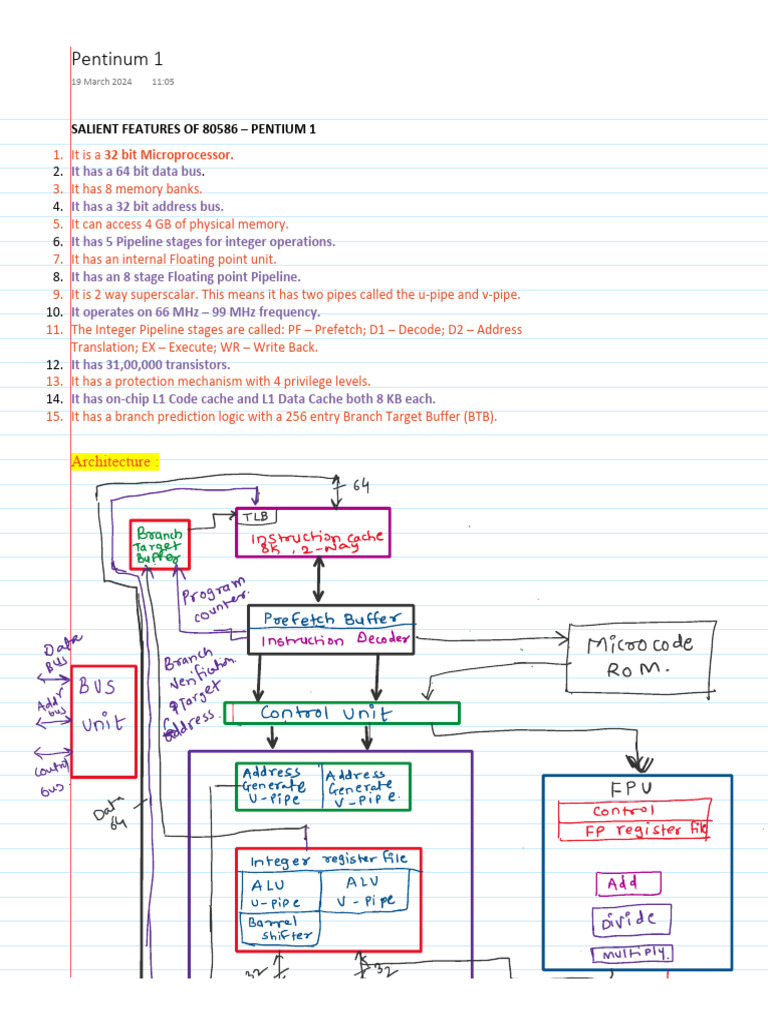 Pentinum 1
19 March 2024 11:05
SALIENT FEATURES OF 80586 – PENTIUM 1
1. It is a 32 bit Microprocessor.
2. It has a 64 bit data bus.
3. It has 8 memory banks.
4. It has a 32 bit address bus.
5. It can access 4 GB of physical memory.
6. It has 5 Pipeline stages for integer operations.
7. It has an internal Floating point unit.
8. It has an 8 stage Floating point Pipeline.
9. It is 2 way superscalar. This means it has two pipes called the u-pipe and v-pipe.
10. It operates on 66 MHz – 99 MHz frequency.
11. The Integer Pipeline stages are called: PF – Prefetch; D1 – Decode; D2 – Address
Translation; EX – Execute; WR – Write Back.
12. It has 31,00,000 transistors.
13. It has a protection mechanism with 4 privilege levels.
14. It has on-chip L1 Code cache and L1 Data Cache both 8 KB each.
15. It has a branch prediction logic with a 256 entry Branch Target Buffer (BTB).
Architecture :
64
TLB
Instruction cache
8K, 2-Way
Branch
Target
Buffer
Program
counter.
Prefetch Buffer
Instruction Decoder
Microcode
ROM.
Branch
Verification
& Target
address.
Data
Bus
Addr
bus
Control
bus.
BUS
Unit
Control Unit
Address
Generate
U-Pipe
Address
Generate
V-Pipe.
Data
64
FPU
Control
FP register file
Add
Divide
Multiply.
Integer register file
ALU
U-Pipe
ALU
V-Pipe
Barrel
Shifter
32
32